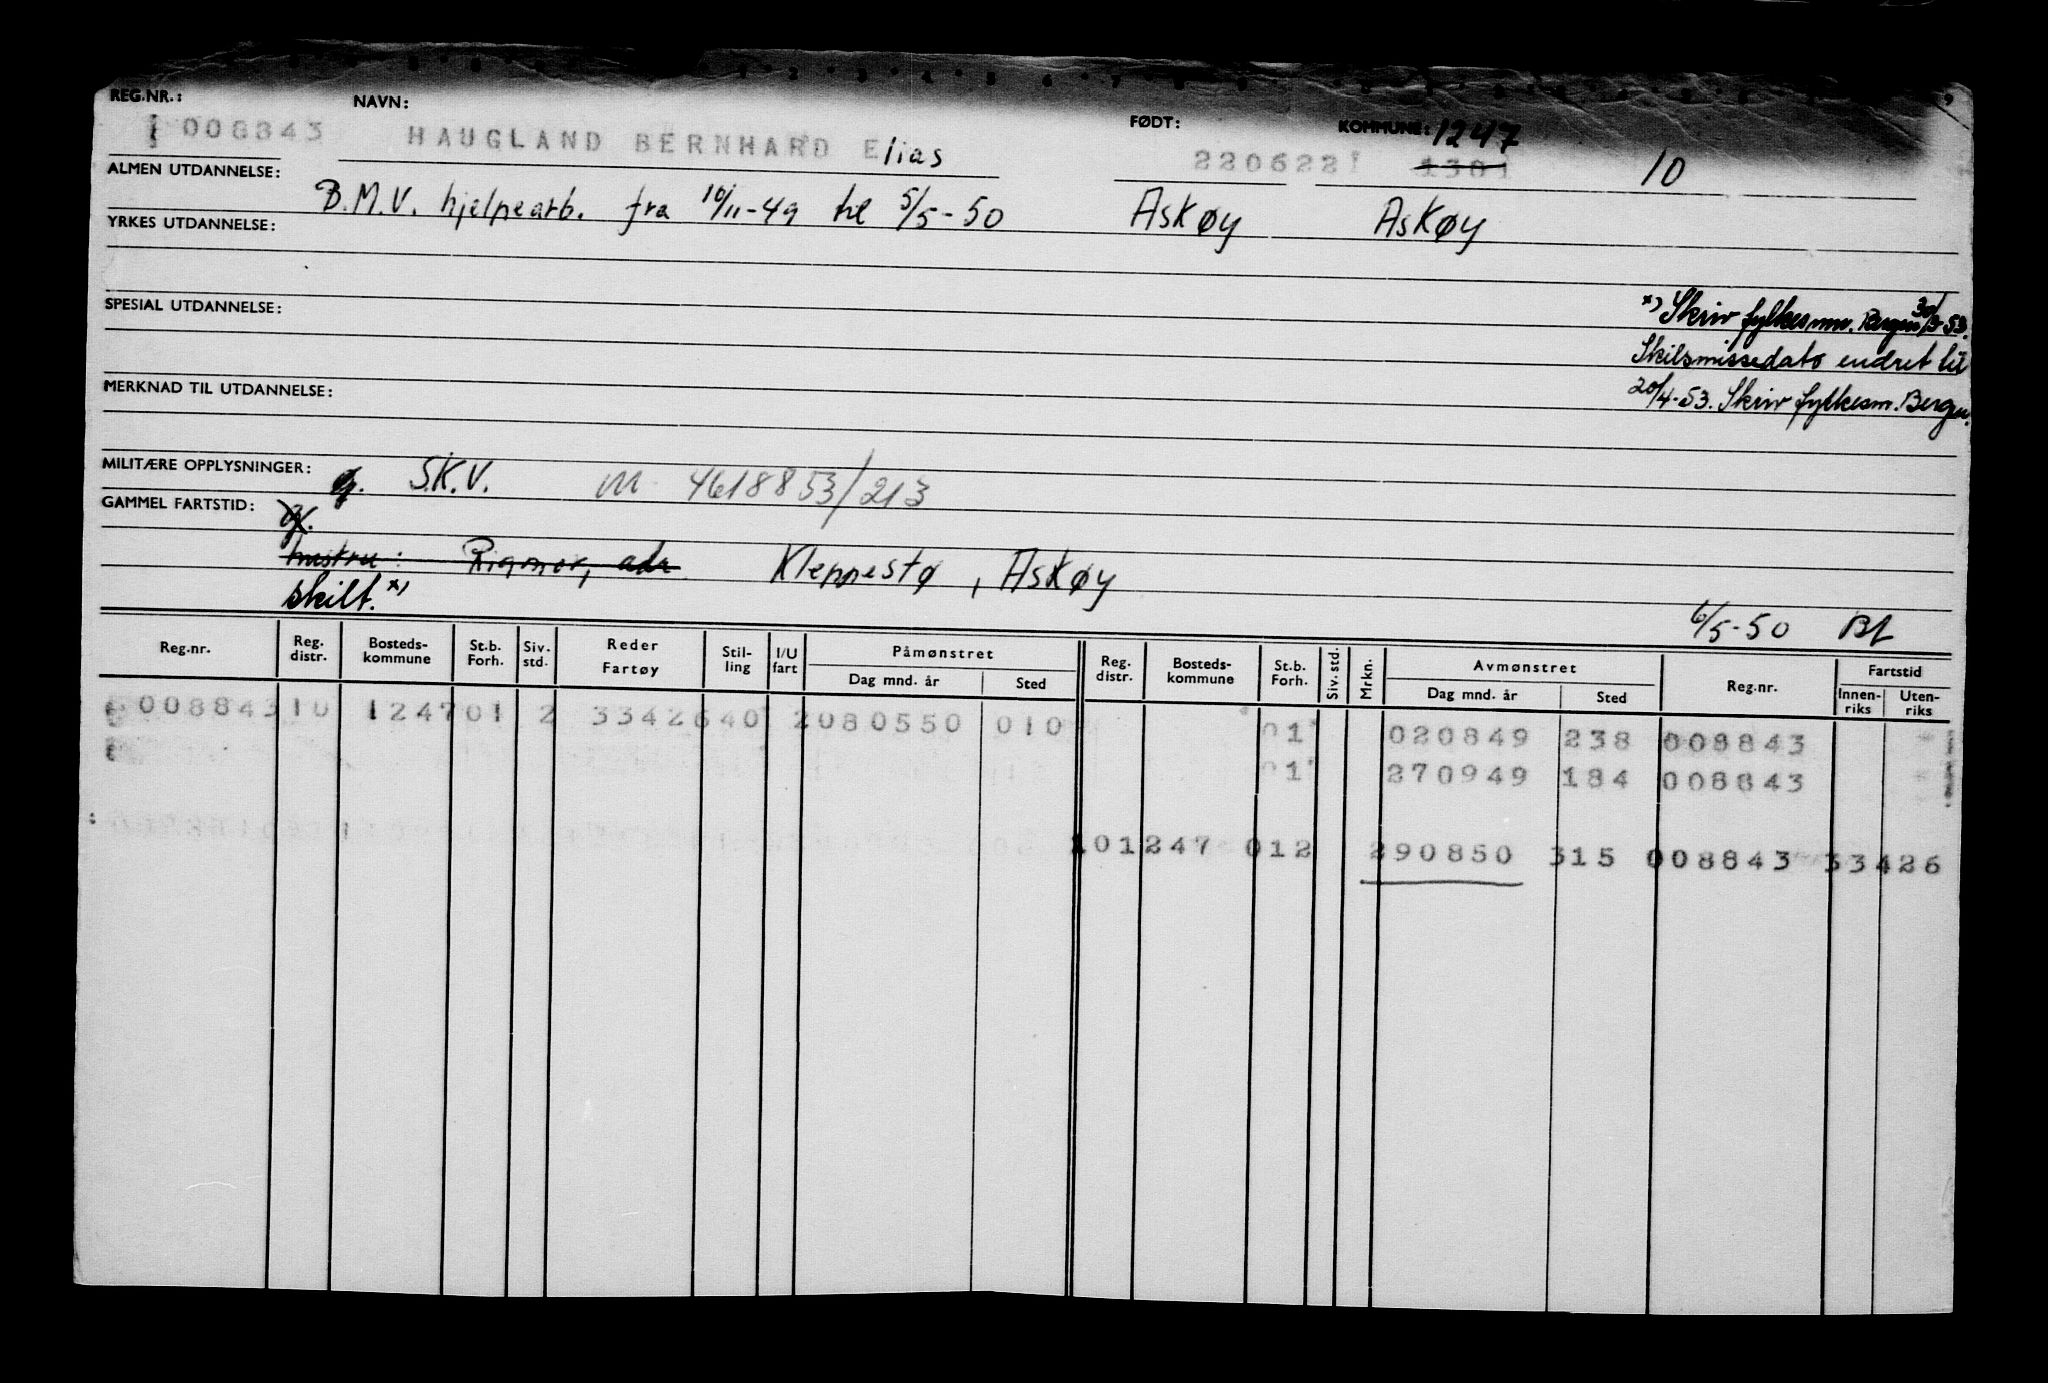 REG.NR.: NAVN: FØDT: KOMMUNE: 1247
008843 HAUGLAND BERNHARD Elias 220622 1301 10
ALMEN UTDANNELSE: B.M.V. hjelpearb. fra 10/11-49 til 5/5-50 Askøy Askøy
YRKES UTDANNELSE:
SPESIAL UTDANNELSE:
x) Skriv fylkesmn. Bergen 30/3-53.
Skilsmissedato endret til
20/4-53. Skriv fylkesm. Bergen.
MERKNAD TIL UTDANNELSE:
MILITÆRE OPPLYSNINGER: g. S.K.V. M 4618853/213
GAMMEL FARTSTID:
g.
hustru: Rigmor, adr Kleppestø, Askøy
skilt. x)
6/5-50 BL
Reg.nr. Reg. distr. Bosteds-kommune St.b. Forh. Siv. std. Reder Fartøy Stil-ling I/U fart Påmønstret Dag mnd. år Sted Reg. distr. Bosteds-kommune St.b. Forh. Siv. std. Mrkn. Avmønstret Dag mnd. år Sted Reg.nr. Fartstid Innen-riks Uten-riks
008843 10 1247 01 2 33426 40 2 080550 010
01 020849 238 008843
01 270949 184 008843
10 1247 012 290850 315 008843 33426